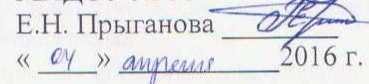 Е.Н. Прыганова
« 04 » апреля 2016 г.